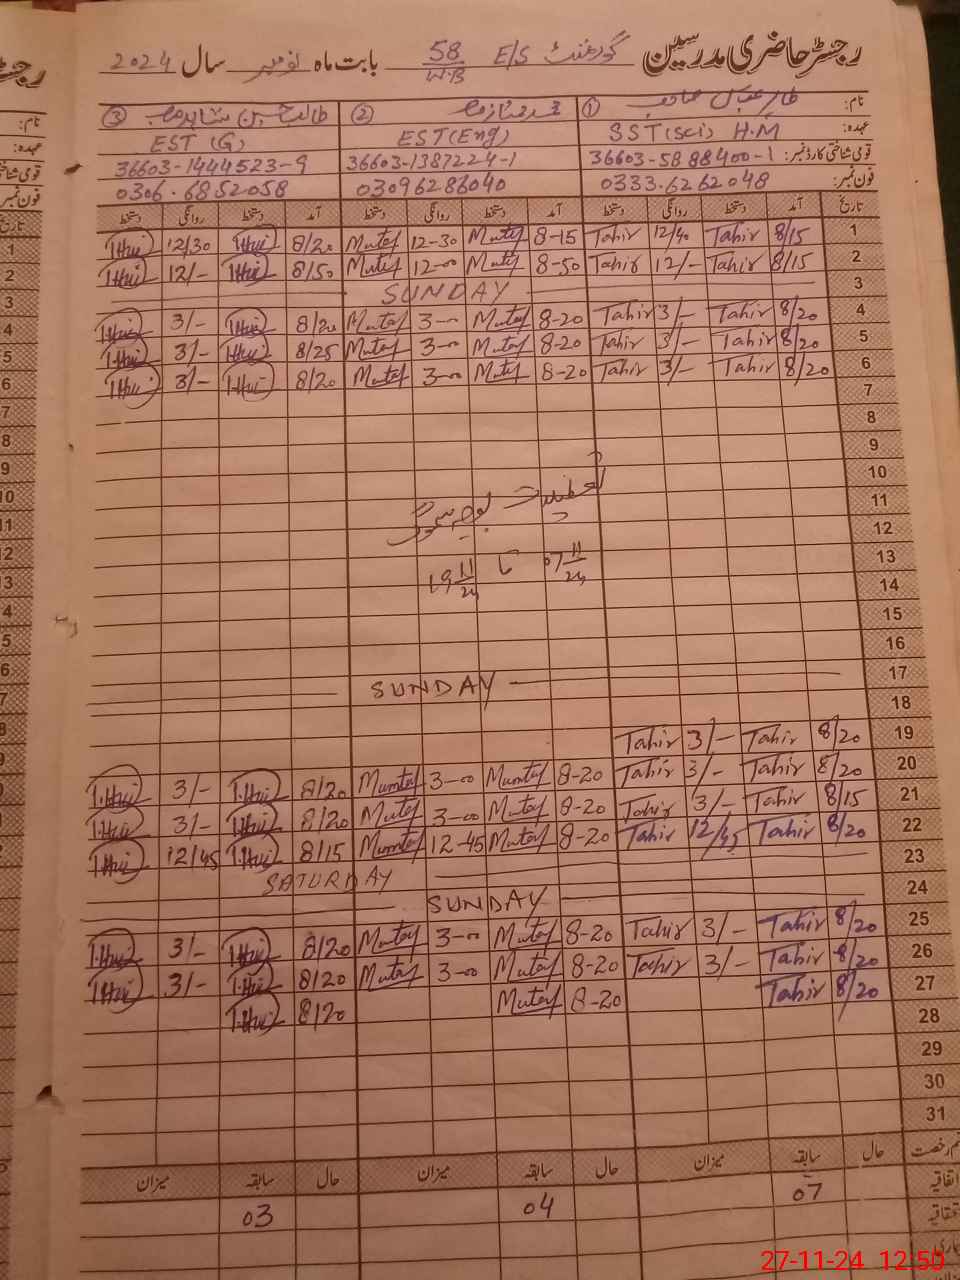 رجسٹر حاضری مدرسین گورنمنٹ E/S 58 W.B بابت ماہ نومبر سال 2024
نام: ① طاہر عباس صاحب ② ③ طالب حسین شاہد صاحب
عہدہ: SST(Sci) H.M EST(Eng) EST (G)
قومی شناختی کارڈ نمبر: 36603-5888400-1 36603-1387224-1 36603-1444523-9
فون نمبر: 0333.6262048 03096286040 0306.6852058
تاریخ آمد دستخط روانگی دستخط آمد دستخط روانگی دستخط آمد دستخط روانگی دستخط
1 8/15 Tahir 12/40 Tahir 8-15 Mutaf 12-30 Mutaf 8/20 T.Hui 12/30 T.Hui
2 8/15 Tahir 12/- Tahir 8-50 Mutaf 12-00 Mutaf 8/50 T.Hui 12/- T.Hui
3 SUNDAY
4 8/20 Tahir 3/- Tahir 8-20 Mutaf 3-00 Mutaf 8/20 T.Hui 3/- T.Hui
5 8/20 Tahir 3/- Tahir 8-20 Mutaf 3-00 Mutaf 8/25 T.Hui 3/- T.Hui
6 8/20 Tahir 3/- Tahir 8-20 Mutaf 3-00 Mutaf 8/20 T.Hui 3/- T.Hui
7
8
9
10
11 تعطیلات بوجہ سموگ
12
13 07 11/24 تا 19 11/24
14
15
16
17 SUNDAY
18
19 8/20 Tahir 3/- Tahir
20 8/20 Tahir 3/- Tahir 8-20 Mumtaf 3-00 Mumtaf 8/20 T.Hui 3/- T.Hui
21 8/15 Tahir 3/- Tahir 8-20 Mutaf 3-00 Mutaf 8/20 T.Hui 3/- T.Hui
22 8/20 Tahir 12/45 Tahir 8-20 Mutaf 12-45 Mumtaf 8/15 T.Hui 12/45 T.Hui
23 SATURDAY
24 SUNDAY
25 8/20 Tahir 3/- Tahir 8-20 Mutaf 3-00 Mutaf 8/20 T.Hui 3/- T.Hui
26 8/20 Tahir 3/- Tahir 8-20 Mutaf 3-00 Mutaf 8/20 T.Hui 3/- T.Hui
27 8/20 Tahir 8-20 Mutaf 8/20 T.Hui
28
29
30
31
قسم رخصت حال سابقہ میزان حال سابقہ میزان حال سابقہ میزان
اتفاقیہ 07 04 03
27-11-24 12:50